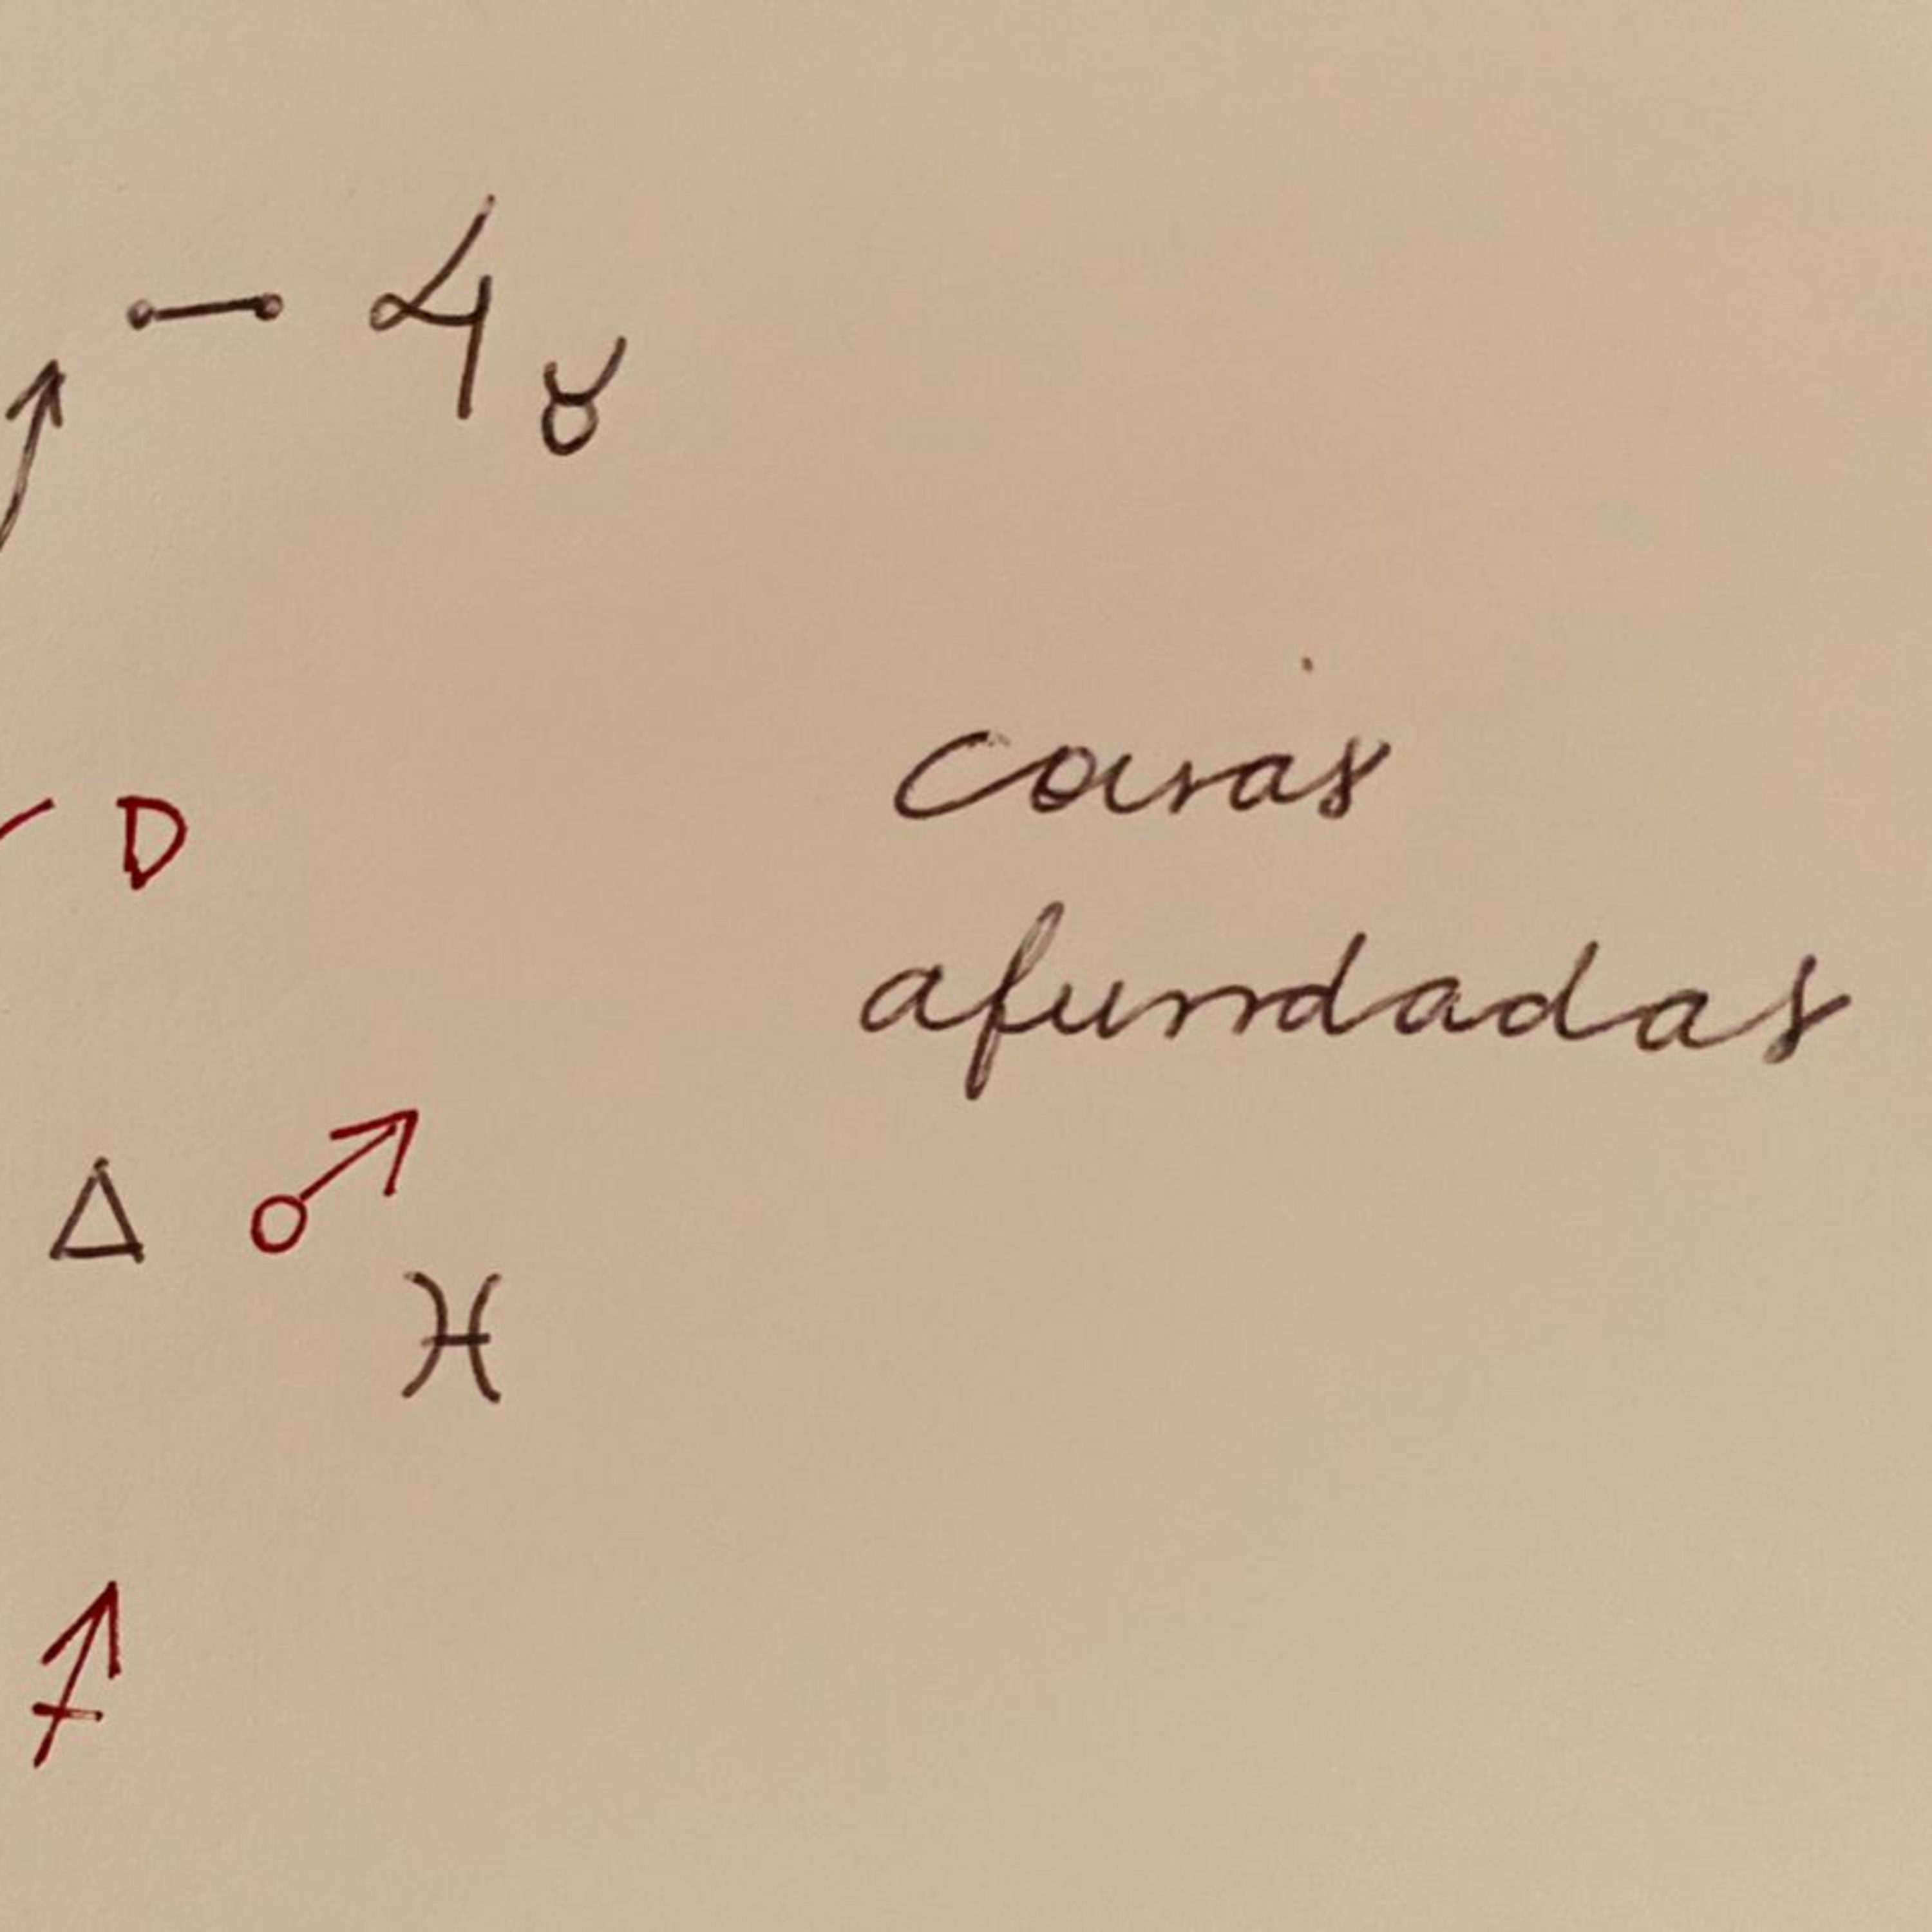 ♃ ♉
D
coisas
afundadas
△ ♂
♓
♐